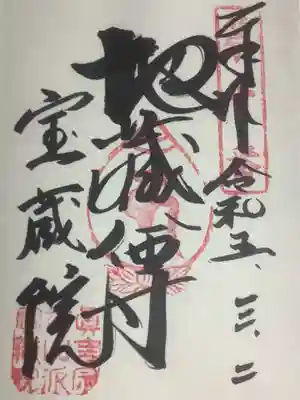 奉拝 令和五、三、二
地蔵尊
宝蔵院